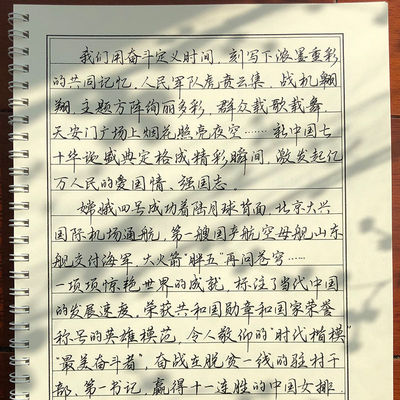 我们用奋斗定义时间，刻写下浓墨重彩
的共同记忆。人民军队虎贲云集，战机翱
翔，主题方阵绚丽多彩，群众载歌载舞，
天安门广场上烟花照亮夜空……新中国七
十华诞盛典定格成精彩瞬间，激发起亿
万人民的爱国情、强国志。
嫦娥四号成功着陆月球背面，北京大兴
国际机场通航，第一艘国产航空母舰山东
舰交付海军，大火箭“胖五”再问苍穹……
一项项惊艳世界的成就，标注了当代中国
的发展速度，荣获共和国勋章和国家荣誉
称号的英雄模范，令人敬仰的“时代楷模”
“最美奋斗者”，奋战在脱贫一线的驻村干
部、第一书记，赢得十一连胜的中国女排